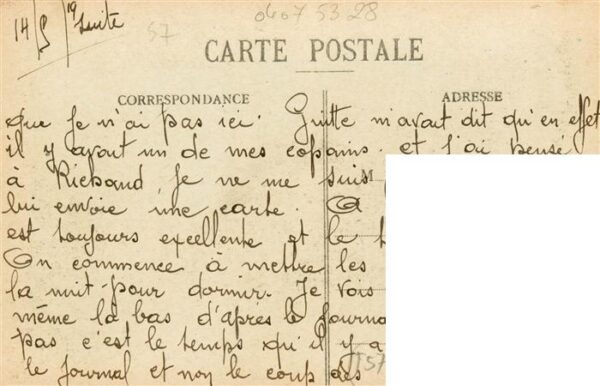 14/5/19
Suite
57
0407 53 28
CARTE POSTALE
CORRESPONDANCE
ADRESSE
que je n'ai pas ici. Guitte m'avait dit qu'en effet
il y avait un de mes copains. et j'ai pensé
à Riebaud, je ne me suis
lui envoie une carte.
est toujours excellente et le
On commence à mettre les
la nuit pour dormir. Je vois
même là bas d'après le journa
pas c'est le temps qu'il y a
le journal et non le coup des
157